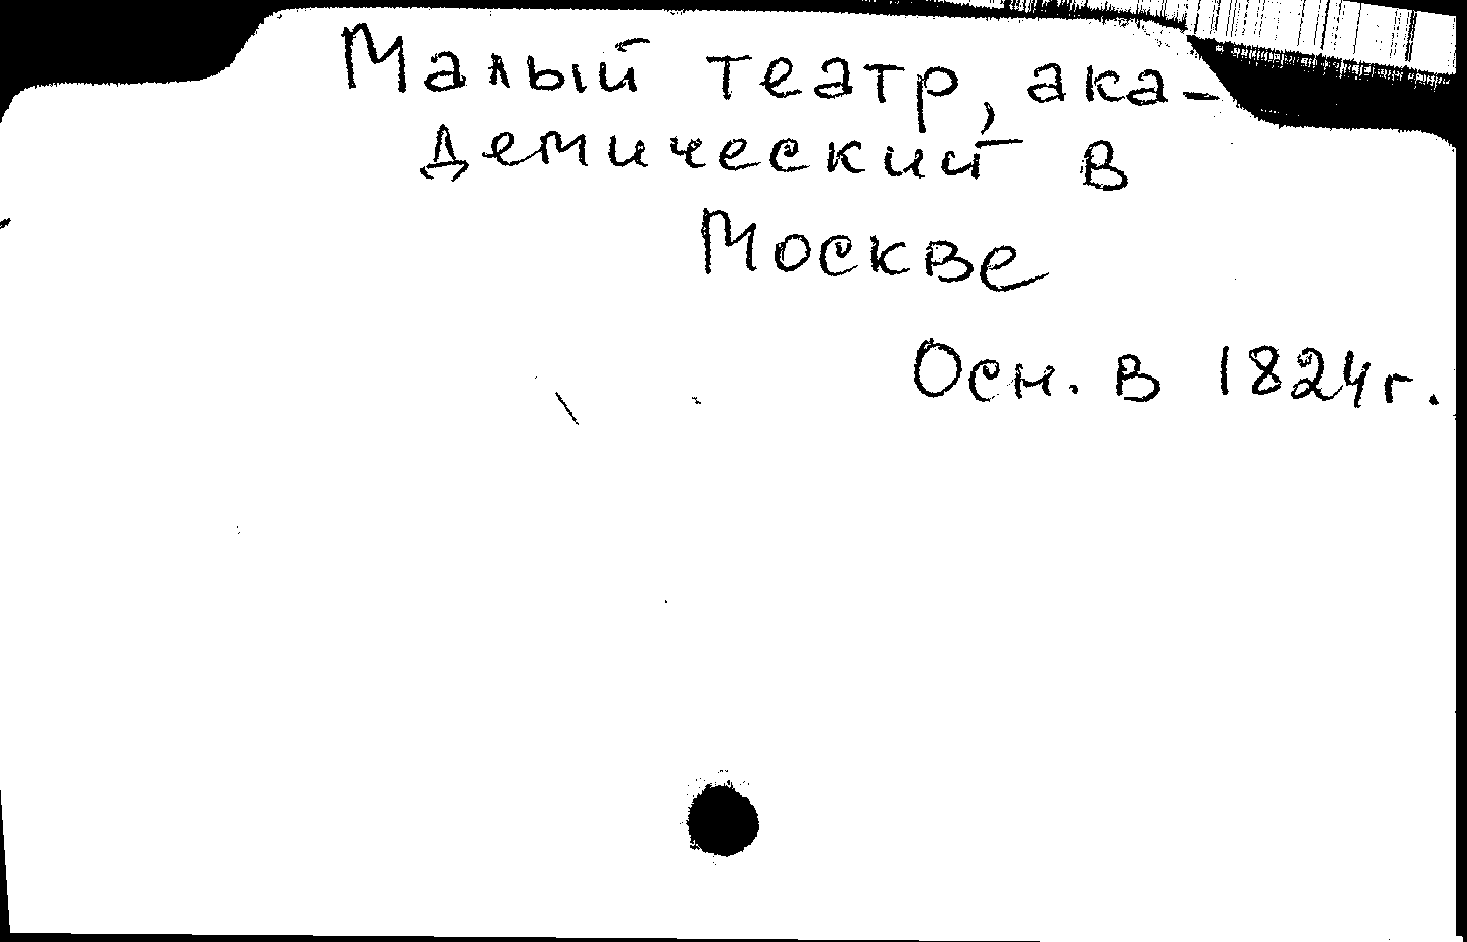 Малый театр, ака-
демический в
Москве
Осн. в 1824г.